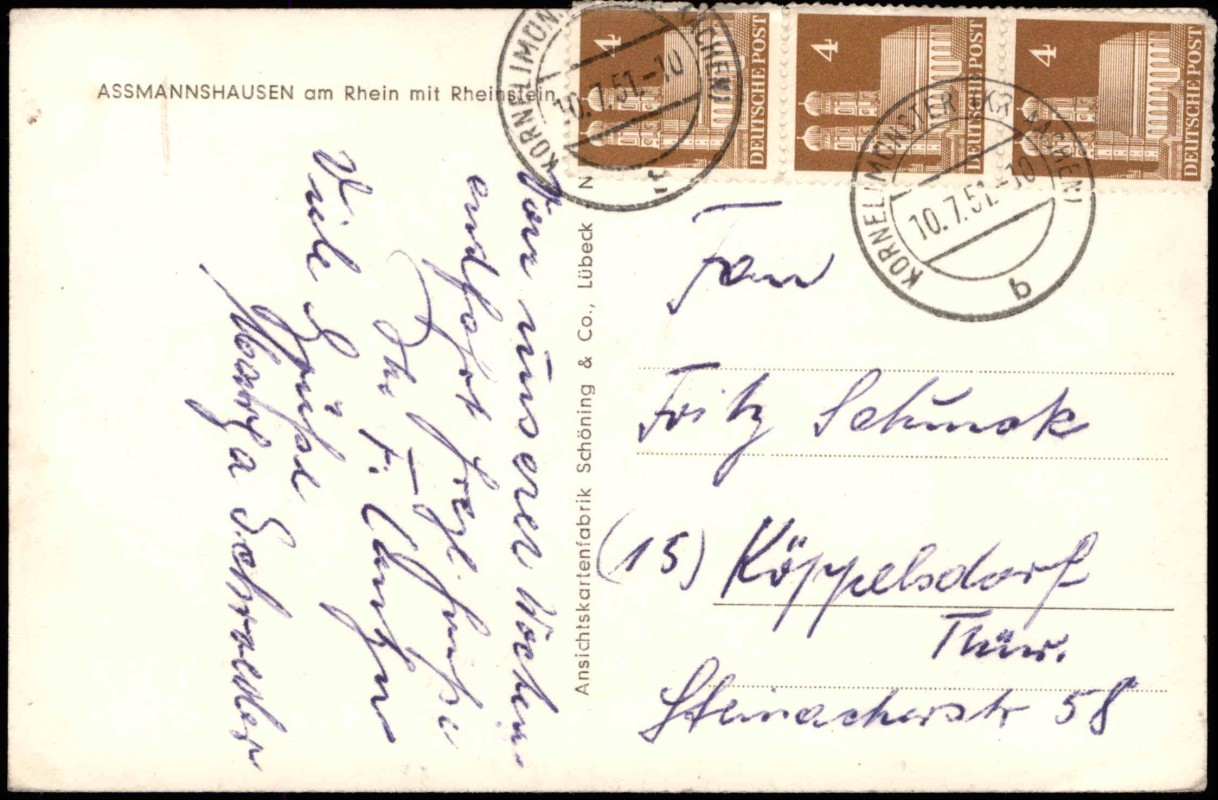 ASSMANNSHAUSEN am Rhein mit Rheinstein
Von unserer Wochen-
endfahrt herzl. Grüße
Ihr F.
Viele Grüße
Schraeder
Ansichtskartenfabrik Schöning & Co., Lübeck
4
DEUTSCHE POST
4
DEUTSCHE POST
4
DEUTSCHE POST
KORNELIMÜNSTER (KR AACHEN)
10.7.51.-10
b
KORNELIMÜNSTER (KR AACHEN)
10.7.51.-10
b
Frau
Fritz Schunk
(15) Köppelsdorf
Thür.
Steinacherstr 58